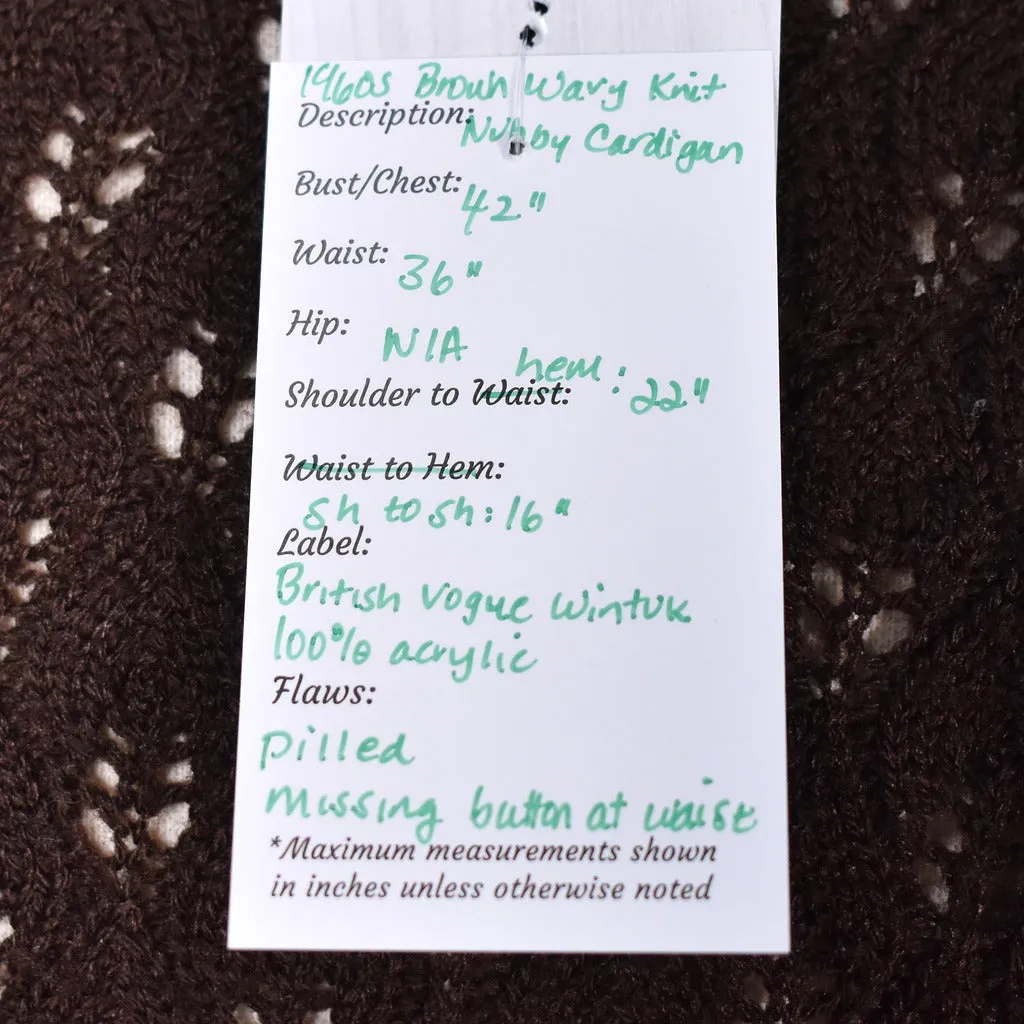 1960s Brown Wavy Knit
Description: Nubby Cardigan
Bust/Chest: 42"
Waist: 36"
Hip: N/A
hem: 22"
Shoulder to Waist:
Waist to Hem:
sh to sh: 16"
Label:
British Vogue Wintuk
100% acrylic
Flaws:
Pilled
Missing button at waist
*Maximum measurements shown
in inches unless otherwise noted